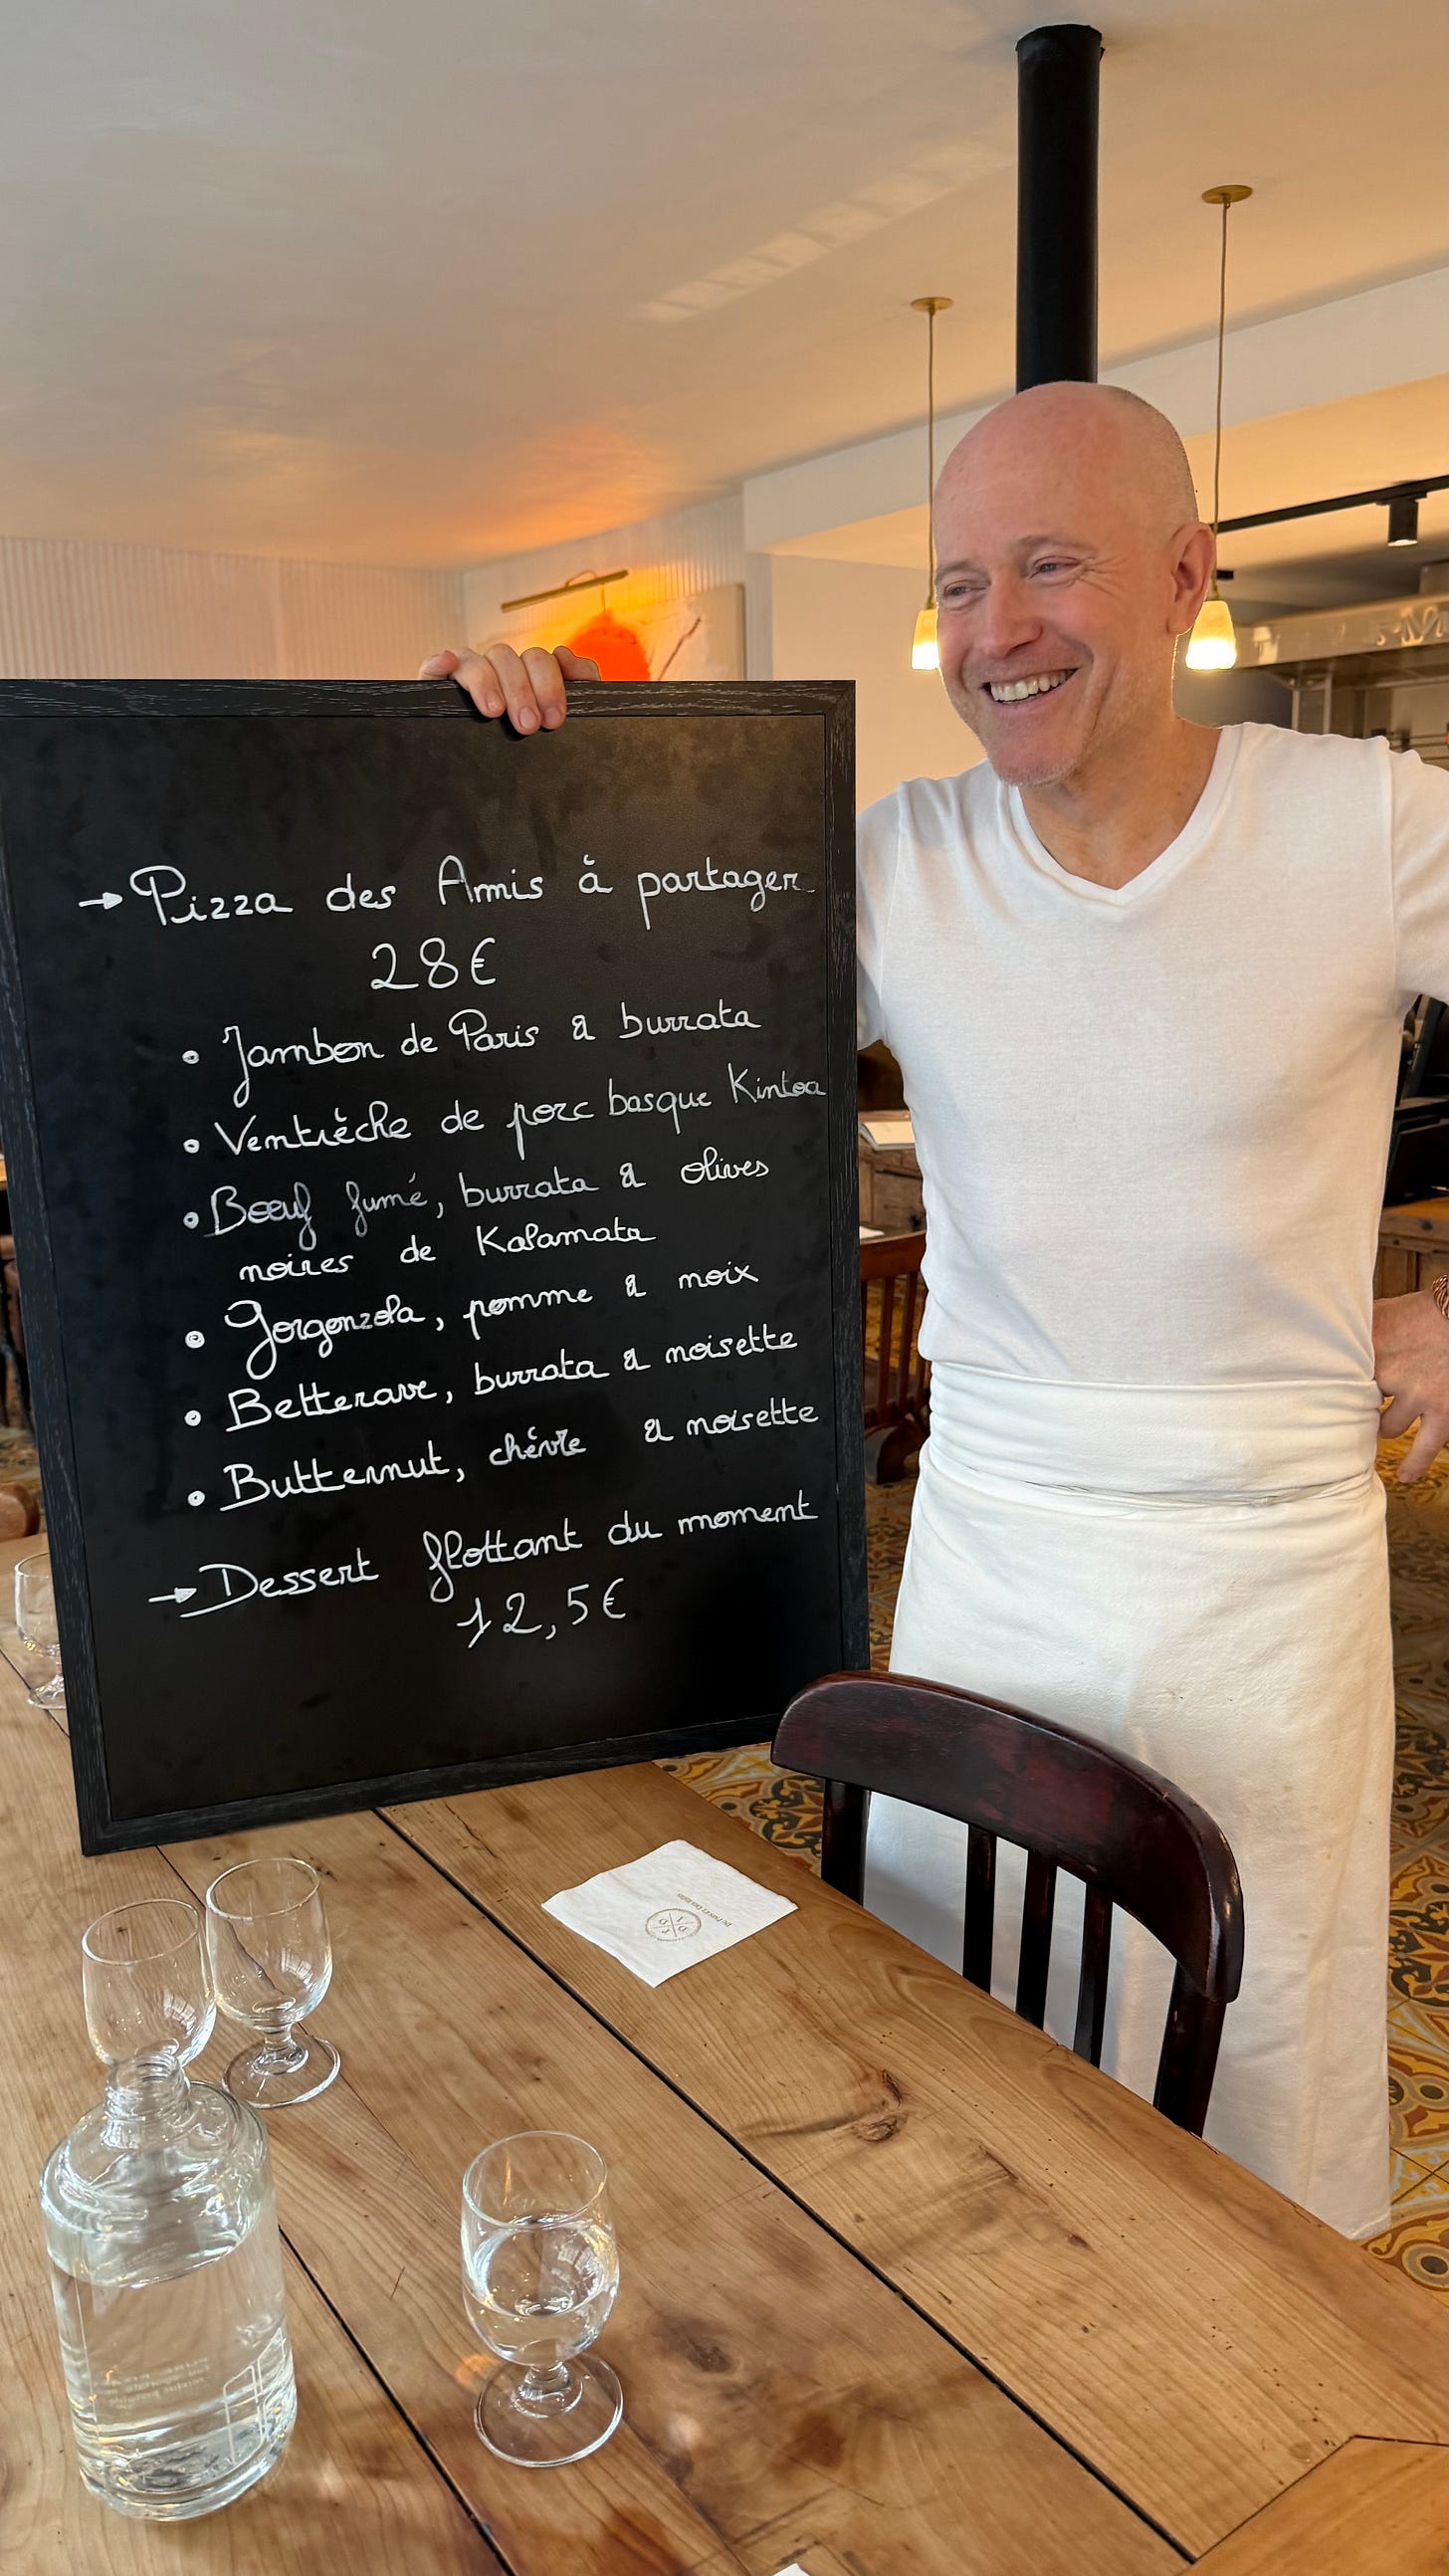 → Pizza des Amis à partager
28€
• Jambon de Paris & burrata
• Ventrèche de porc basque Kintoa
• Boeuf fumé, burrata & olives
noires de Kalamata
• Gorgonzola, pomme & noix
• Betterave, burrata & noisette
• Butternut, chévre & noisette
→ Dessert flottant du moment
12,5€